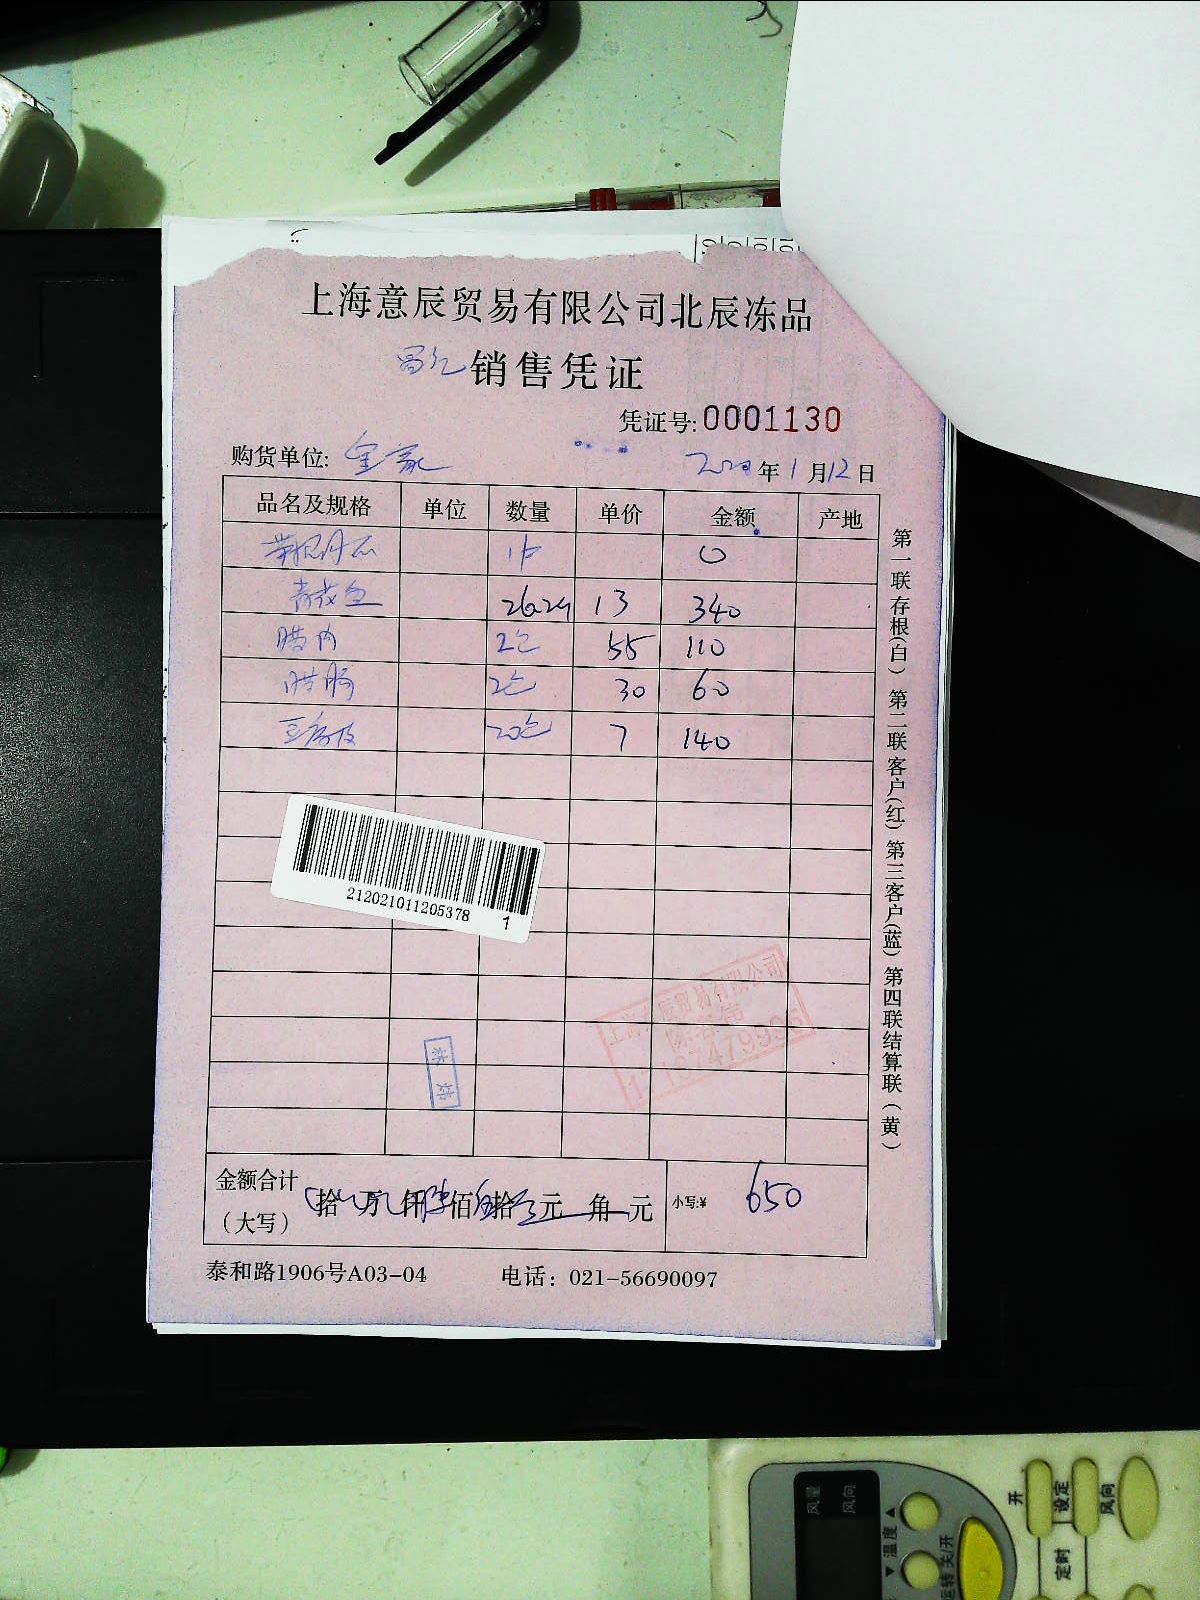 上海意辰贸易有限公司北辰冻品
销售凭证
凭证号:0001130
购货单位:
年1月12日
品名及规格 单位 数量 单价 金额 产地
0
青鱼 26.24 13 340
腊肉 2包 55 110
腊肠 2包 30 60
豆腐皮 20包 7 140
212021011205378 1
上海意辰贸易有限公司
金额合计 拾 万 仟 陆佰 伍拾 元 角 元 小写:¥ 650
(大写)
泰和路1906号A03-04 电话: 021-56690097
第一联存根(白) 第二联客户(红) 第三客户(蓝) 第四联结算联(黄)
风量
风向
▲
温度
▼
运转 关/开
开
设定
风向
定时